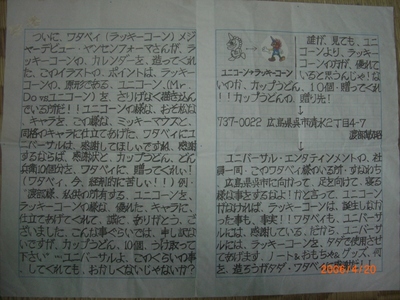 ついに、ワタベイ(ラッキーコーン)メジ
ャーデビュー・ヤンセンフォーマさんが、ラ
ッキーコーンの、カレンダーを、造ってくれ
た、このイラストの、ポイントは、ラッキー
コーンの、原形である、ユニコーン、(Mr.
Do vs ユニコーン)を、さりげなく描き込んで
いるのが
キャラを、この様な、ミッキーマウスと、
同格のキャラに仕立てあげた、ワタベイにユ
ニバーサルは、感謝してほしいですが、感謝
するならば、感謝状と、カップうどん、どん
兵衛10個分を、ワタベイに、贈ってくれい!
(ワタベイ、今、経済的に苦しい!!)例・
渡部様、私供の所有する、ユニコーンを、
ラッキーコーンの様な、優れた、キャラに、
仕立てあげてくれて、誠に、ありがとう、ご
ざいました、こんな事ぐらいでは、申し訳な
いですが、カップうどん、10個、うけ取って
下さい
してくれても、おかしくないじゃないか?
ユニコーン→ラッキーコーン
誰が、見ても、ユニ
コーンより、ラッキー
コーンの方が、優れて
いると思うんじゃな
いのか、カップうどん、10個、贈ってくれ
い!!カップうどんの、贈り先!
737-0022 広島県呉市清水2丁目4-7
ユニバーサル・エンタテインメントの、社
員一同、このワタベイ様のいる方、すなわち
、広島県呉市に向けて、足を向けて、寝る
様な事をするなよ!
がなければ、ラッキーコーンは、誕生しなか
った事も、事実!!ワタベイも、ユニバーサ
ルには、感謝している、だから、ユニバーサ
ルには、ラッキーコーンを、タダで使用させ
てあげます、ノート&おもちゃ&グッズ、何
2006/4/20